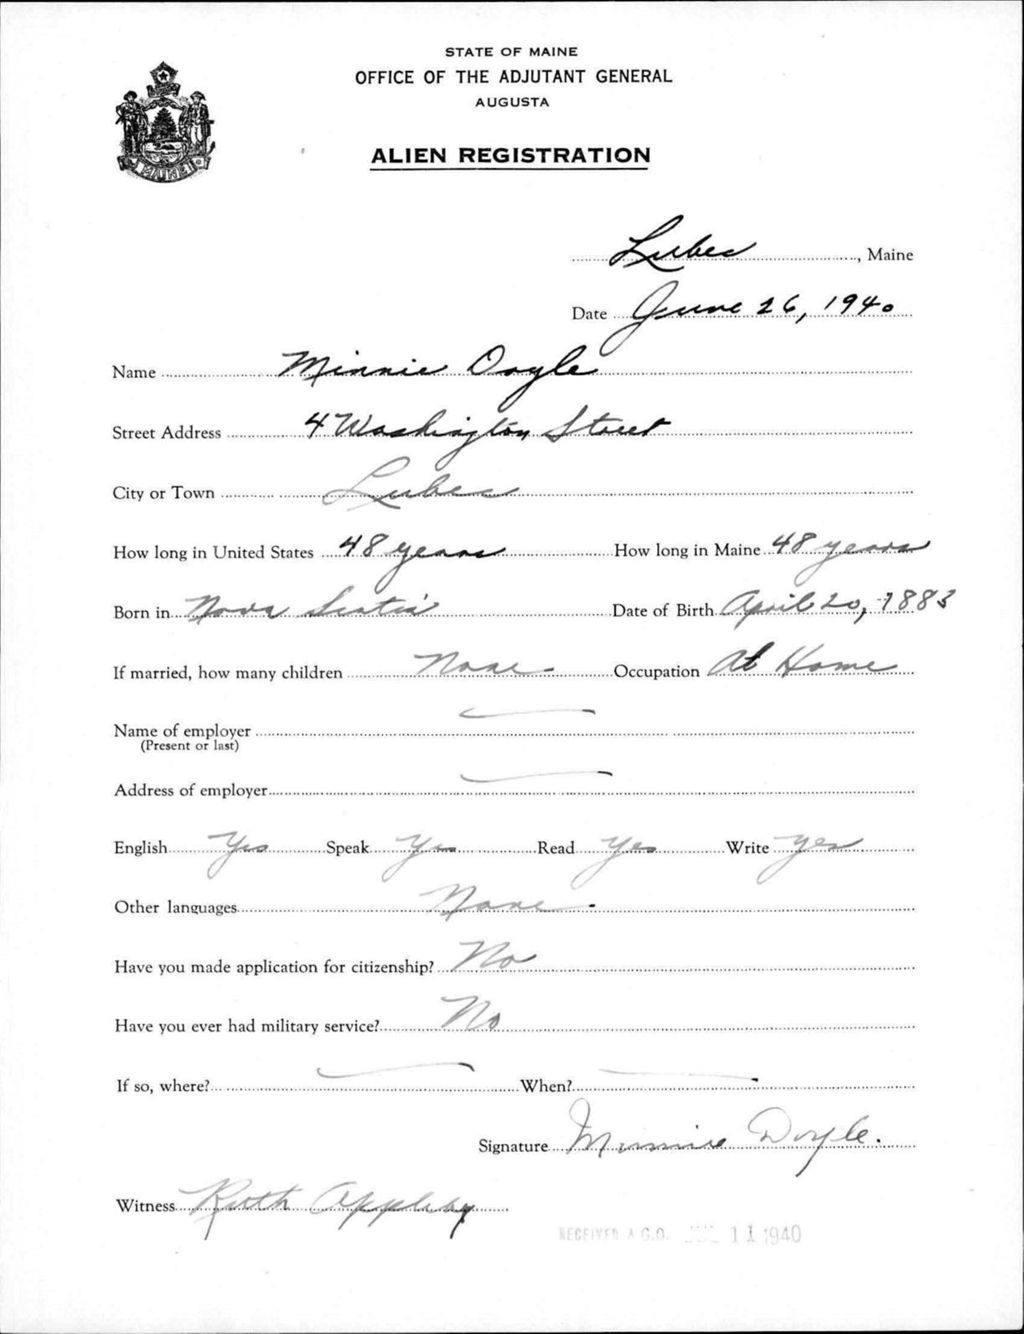 STATE OF MAINE
OFFICE OF THE ADJUTANT GENERAL
AUGUSTA
ALIEN REGISTRATION
MAINE
Lubec, Maine
Date June 26, 1940
Name Minnie Doyle
Street Address 4 Washington Street
City or Town Lubec
How long in United States 48 years How long in Maine 48 years
Born in Nova Scotia Date of Birth April 20, 1883
If married, how many children None Occupation At Home
Name of employer
(Present or last)
Address of employer
English Yes Speak Yes Read Yes Write Yes
Other languages None.
Have you made application for citizenship? No
Have you ever had military service? No
If so, where? When?
Signature Minnie Doyle.
Witness Ruth Appleby
RECEIVED A.G.O. JUL 11 1940